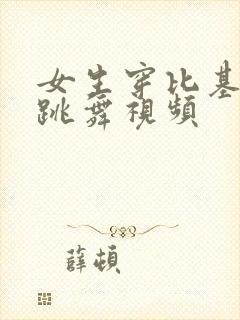 女生穿比基
跳舞視頻
薛頓